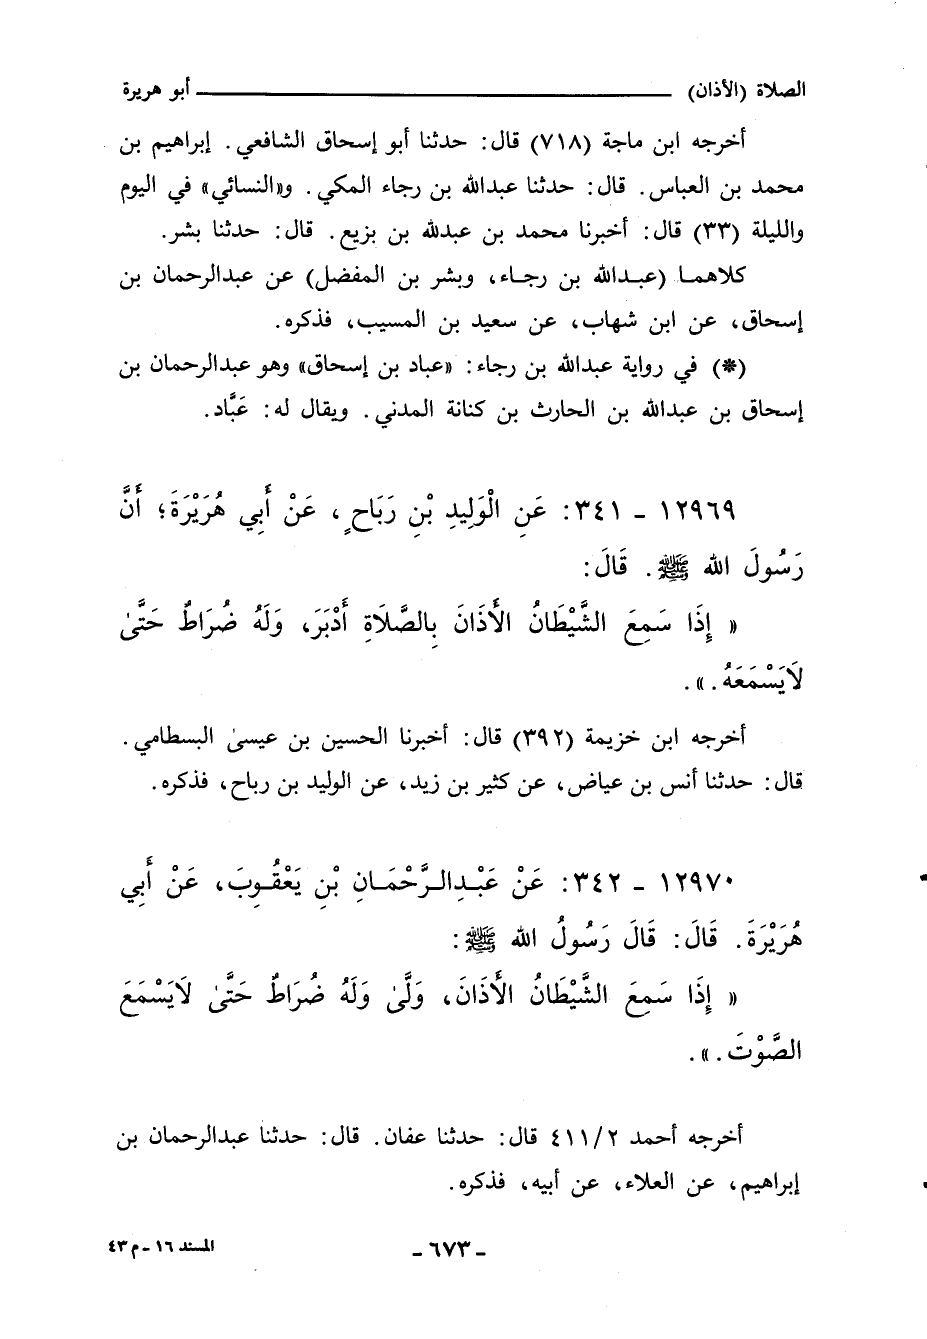 الصلاة (الأذان) ــــــــــــــــ أبو هريرة
أخرجه ابن ماجة (٧١٨) قال: حدثنا أبو إسحاق الشافعي. إبراهيم بن
محمد بن العباس. قال: حدثنا عبدالله بن رجاء المكي. و«النسائي» في اليوم
والليلة (٣٣) قال: أخبرنا محمد بن عبدلله بن بزيع. قال: حدثنا بشر.
كلاهما (عبدالله بن رجاء، وبشر بن المفضل) عن عبدالرحمان بن
إسحاق، عن ابن شهاب، عن سعيد بن المسيب، فذكره.
(*) في رواية عبدالله بن رجاء: «عباد بن إسحاق» وهو عبدالرحمان بن
إسحاق بن عبدالله بن الحارث بن كنانة المدني. ويقال له: عَبَّاد.
١٢٩٦٩ - ٣٤١: عَنِ الْوَلِيدِ بْنِ رَبَاحٍ، عَنْ أَبِي هُرَيْرَةَ؛ أَنَّ
رَسُولَ الله ﷺ. قَالَ:
« إِذَا سَمِعَ الشَّيْطَانُ الْأَذَانَ بِالصَّلَاةِ أَدْبَرَ، وَلَهُ ضُرَاطٌ حَتَّىٰ
لَايَسْمَعَهُ.».
أخرجه ابن خزيمة (٣٩٢) قال: أخبرنا الحسين بن عيسىٰ البسطامي.
قال: حدثنا أنس بن عياض، عن كثير بن زيد، عن الوليد بن رباح، فذكره.
١٢٩٧٠ - ٣٤٢: عَنْ عَبْدِالرَّحْمَانِ بْنِ يَعْقُوبَ، عَنْ أَبِي
هُرَيْرَةَ. قَالَ: قَالَ رَسُولُ الله ﷺ:
« إِذَا سَمِعَ الشَّيْطَانُ الْأَذَانَ، وَلَّىٰ وَلَهُ ضُرَاطٌ حَتَّىٰ لَايَسْمَعَ
الصَّوْتَ.».
أخرجه أحمد ٤١١/٢ قال: حدثنا عفان. قال: حدثنا عبدالرحمان بن
إبراهيم، عن العلاء، عن أبيه، فذكره.
- ٦٧٣ -
المسند ١٦ - م ٤٣